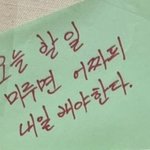 오늘 할일
미루면 어짜피
내일 해야한다.